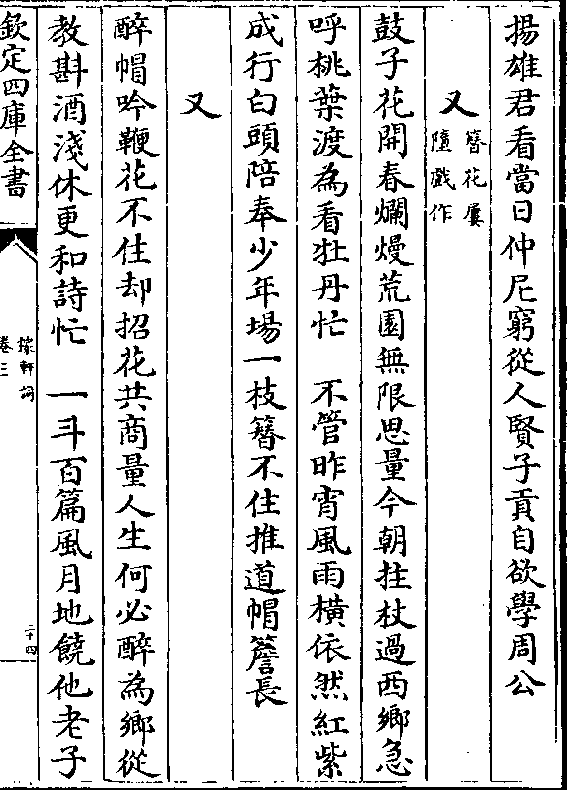 揚雄君看當日仲尼窮從人賢子貢自欲學周公
又 簪花屢
墮戲作
鼓子花開春爛熳荒園無限思量今朝拄杖過西鄉急
呼桃葉渡為看牡丹忙　不管昨宵風雨橫依然紅紫
成行白頭陪奉少年場一枝簪不住推道帽簷長
又
醉帽吟鞭花不住却招花共商量人生何必醉為鄉從
教斟酒淺休更和詩忙　一斗百篇風月地饒他老子
欽定四庫全書
稼軒詞
卷三
二十四